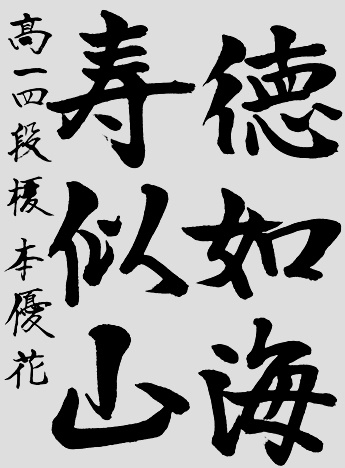 徳如海
寿似山
高一四段榎本優花